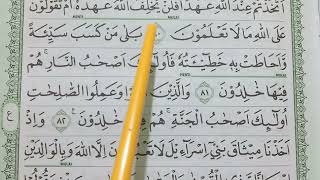 أَتَّخَذْتُمْ عِنْدَ اللّٰهِ عَهْدًا فَلَنْ يُخْلِفَ اللّٰهُ عَهْدَهٗ أَمْ تَقُولُونَ
عَلَى اللّٰهِ مَا لَا تَعْلَمُونَ بَلٰى مَنْ كَسَبَ سَيِّئَةً
وَأَحَاطَتْ بِهِ خَطِيْٓئَتُهٗ فَأُولٰٓئِكَ أَصْحٰبُ النَّارِ هُمْ
فِيهَا خٰلِدُونَ ٨١ وَالَّذِينَ اٰمَنُوا وَعَمِلُوا الصّٰلِحٰتِ
أُولٰٓئِكَ أَصْحٰبُ الْجَنَّةِ هُمْ فِيهَا خٰلِدُونَ ٨٢ وَإِذْ
أَخَذْنَا مِيثَاقَ بَنِيٓ إِسْرَآءِيلَ لَا تَعْبُدُونَ إِلَّا اللّٰهَ وَبِالْوَالِدَيْنِ